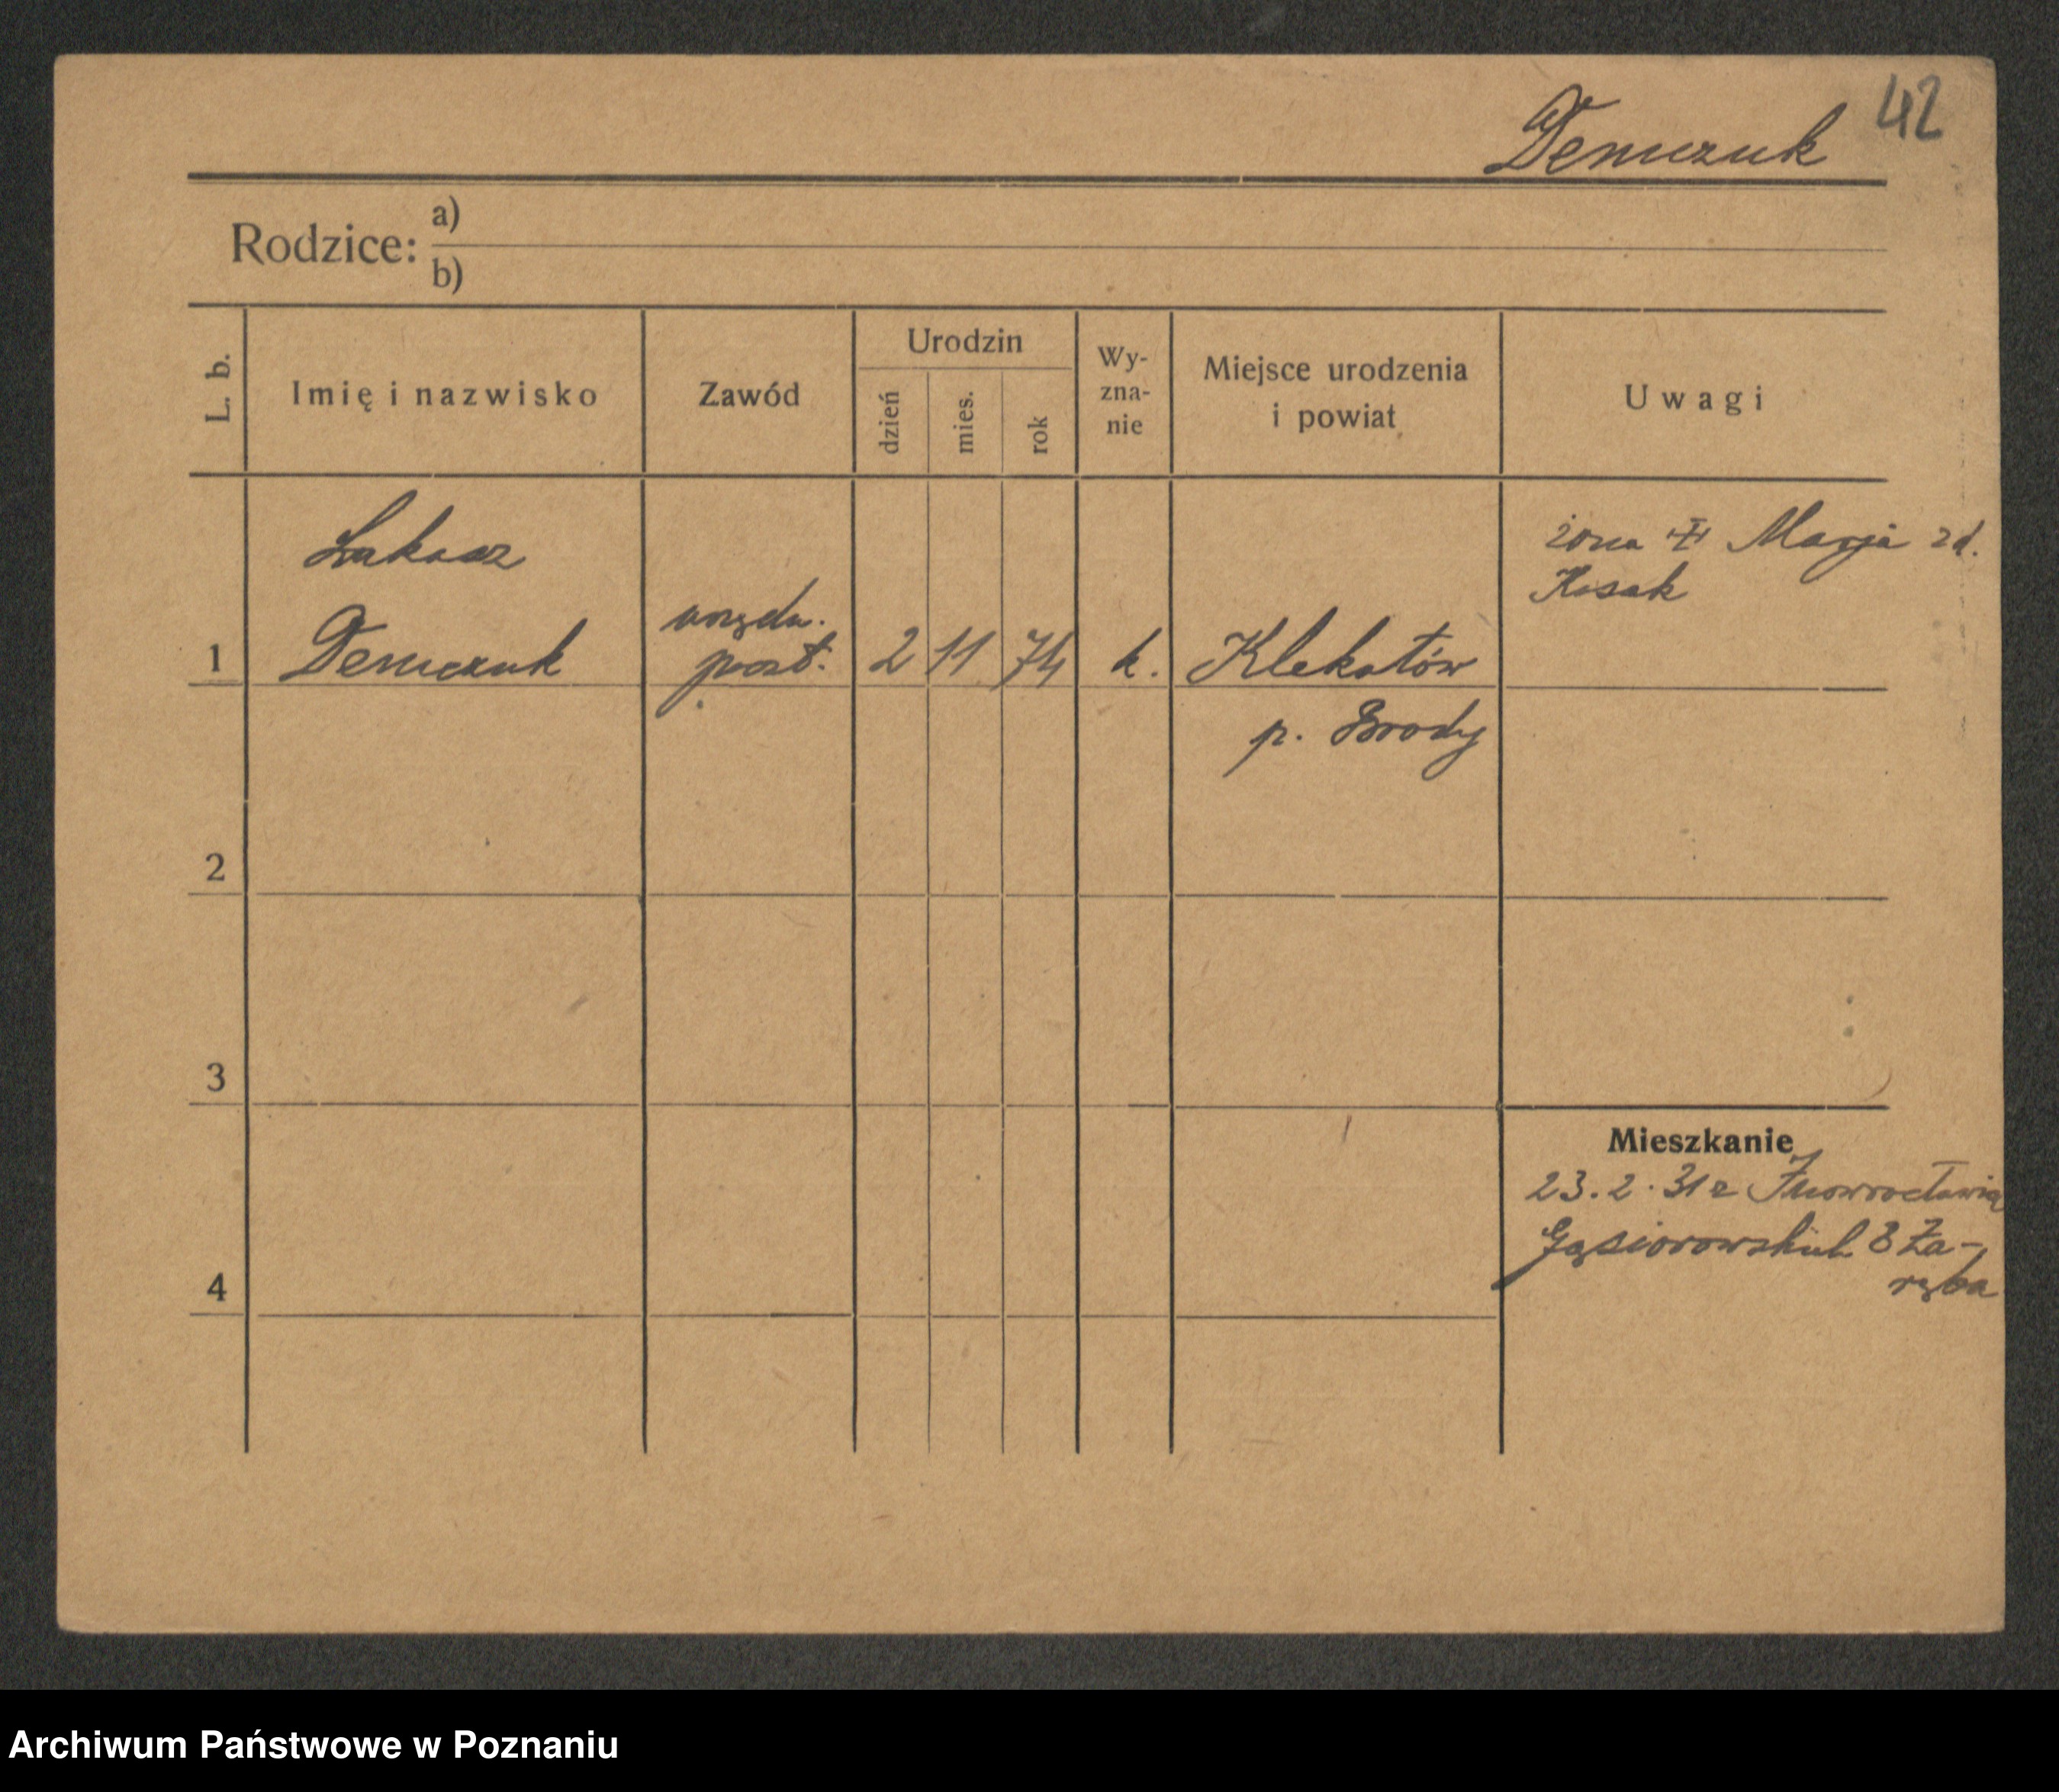 42
Demczuk
Rodzice: a)
b)
L. b.
Imię i nazwisko
Zawód
Urodzin
dzień
mies.
rok
Wy-
zna-
nie
Miejsce urodzenia
i powiat
Uwagi
żona Marja zd.
Kosak
Łukasz
urzędn.
1 Demczuk post. 2 11 74 k. Klekotów
p. Brody
2
3
Mieszkanie
23. 2. 31 z Inowrocławia
Gąsiorowskich 8 Za-
ręba
4
Archiwum Państwowe w Poznaniu